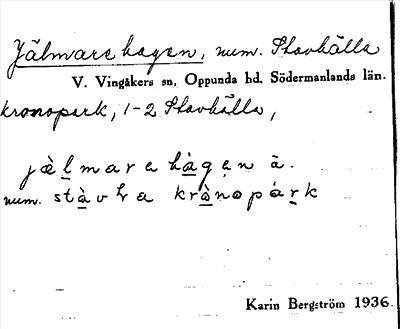 Jälmare hagen, num. Stavhälla
V. Vingåkers sn, Oppunda hd. Södermanlands län.
kronopark, 1-2 Stavhälla,
jæ̀l̠marehà̠gen ä.
num. stà̠vhra krà̠nopár̠k
Karin Bergström 1936